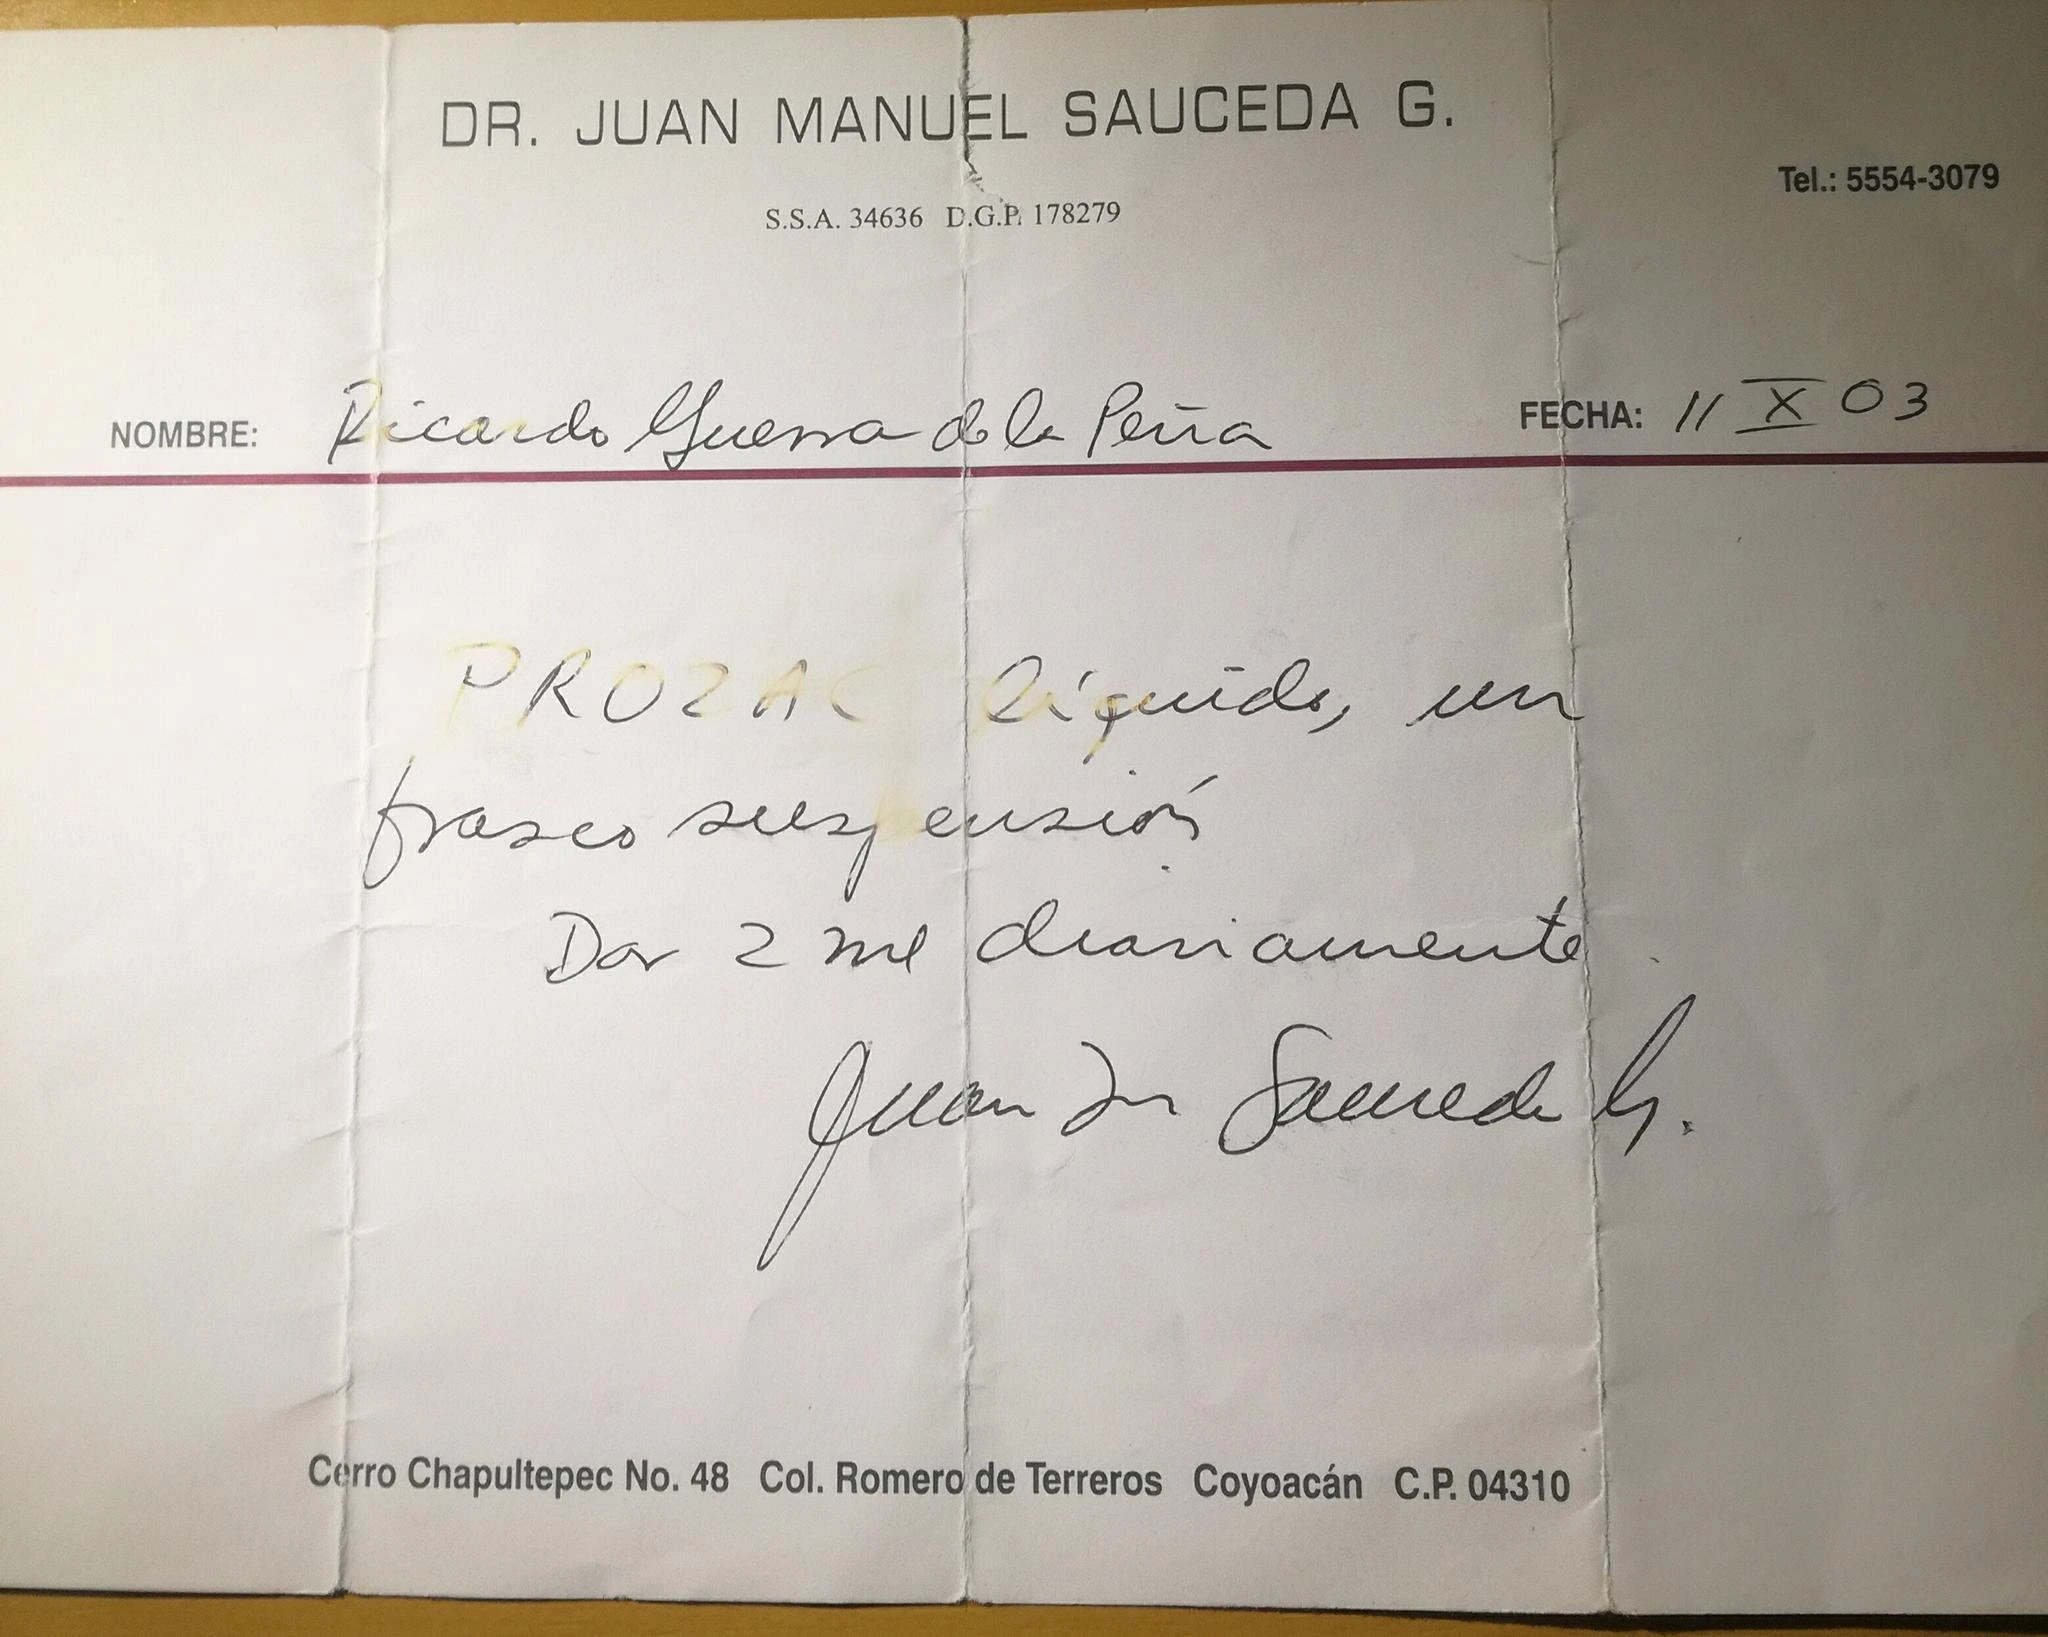 DR. JUAN MANUEL SAUCEDA G.
Tel.: 5554-3079
S.S.A. 34636 D.G.P. 178279
NOMBRE: Ricardo Guerra de la Peña FECHA: 11 X 03
PROZAC líquido, un
frasco suspensión
Dar 2 ml diariamente.
Juan M Sauceda G.
Cerro Chapultepec No. 48 Col. Romero de Terreros Coyoacán C.P. 04310